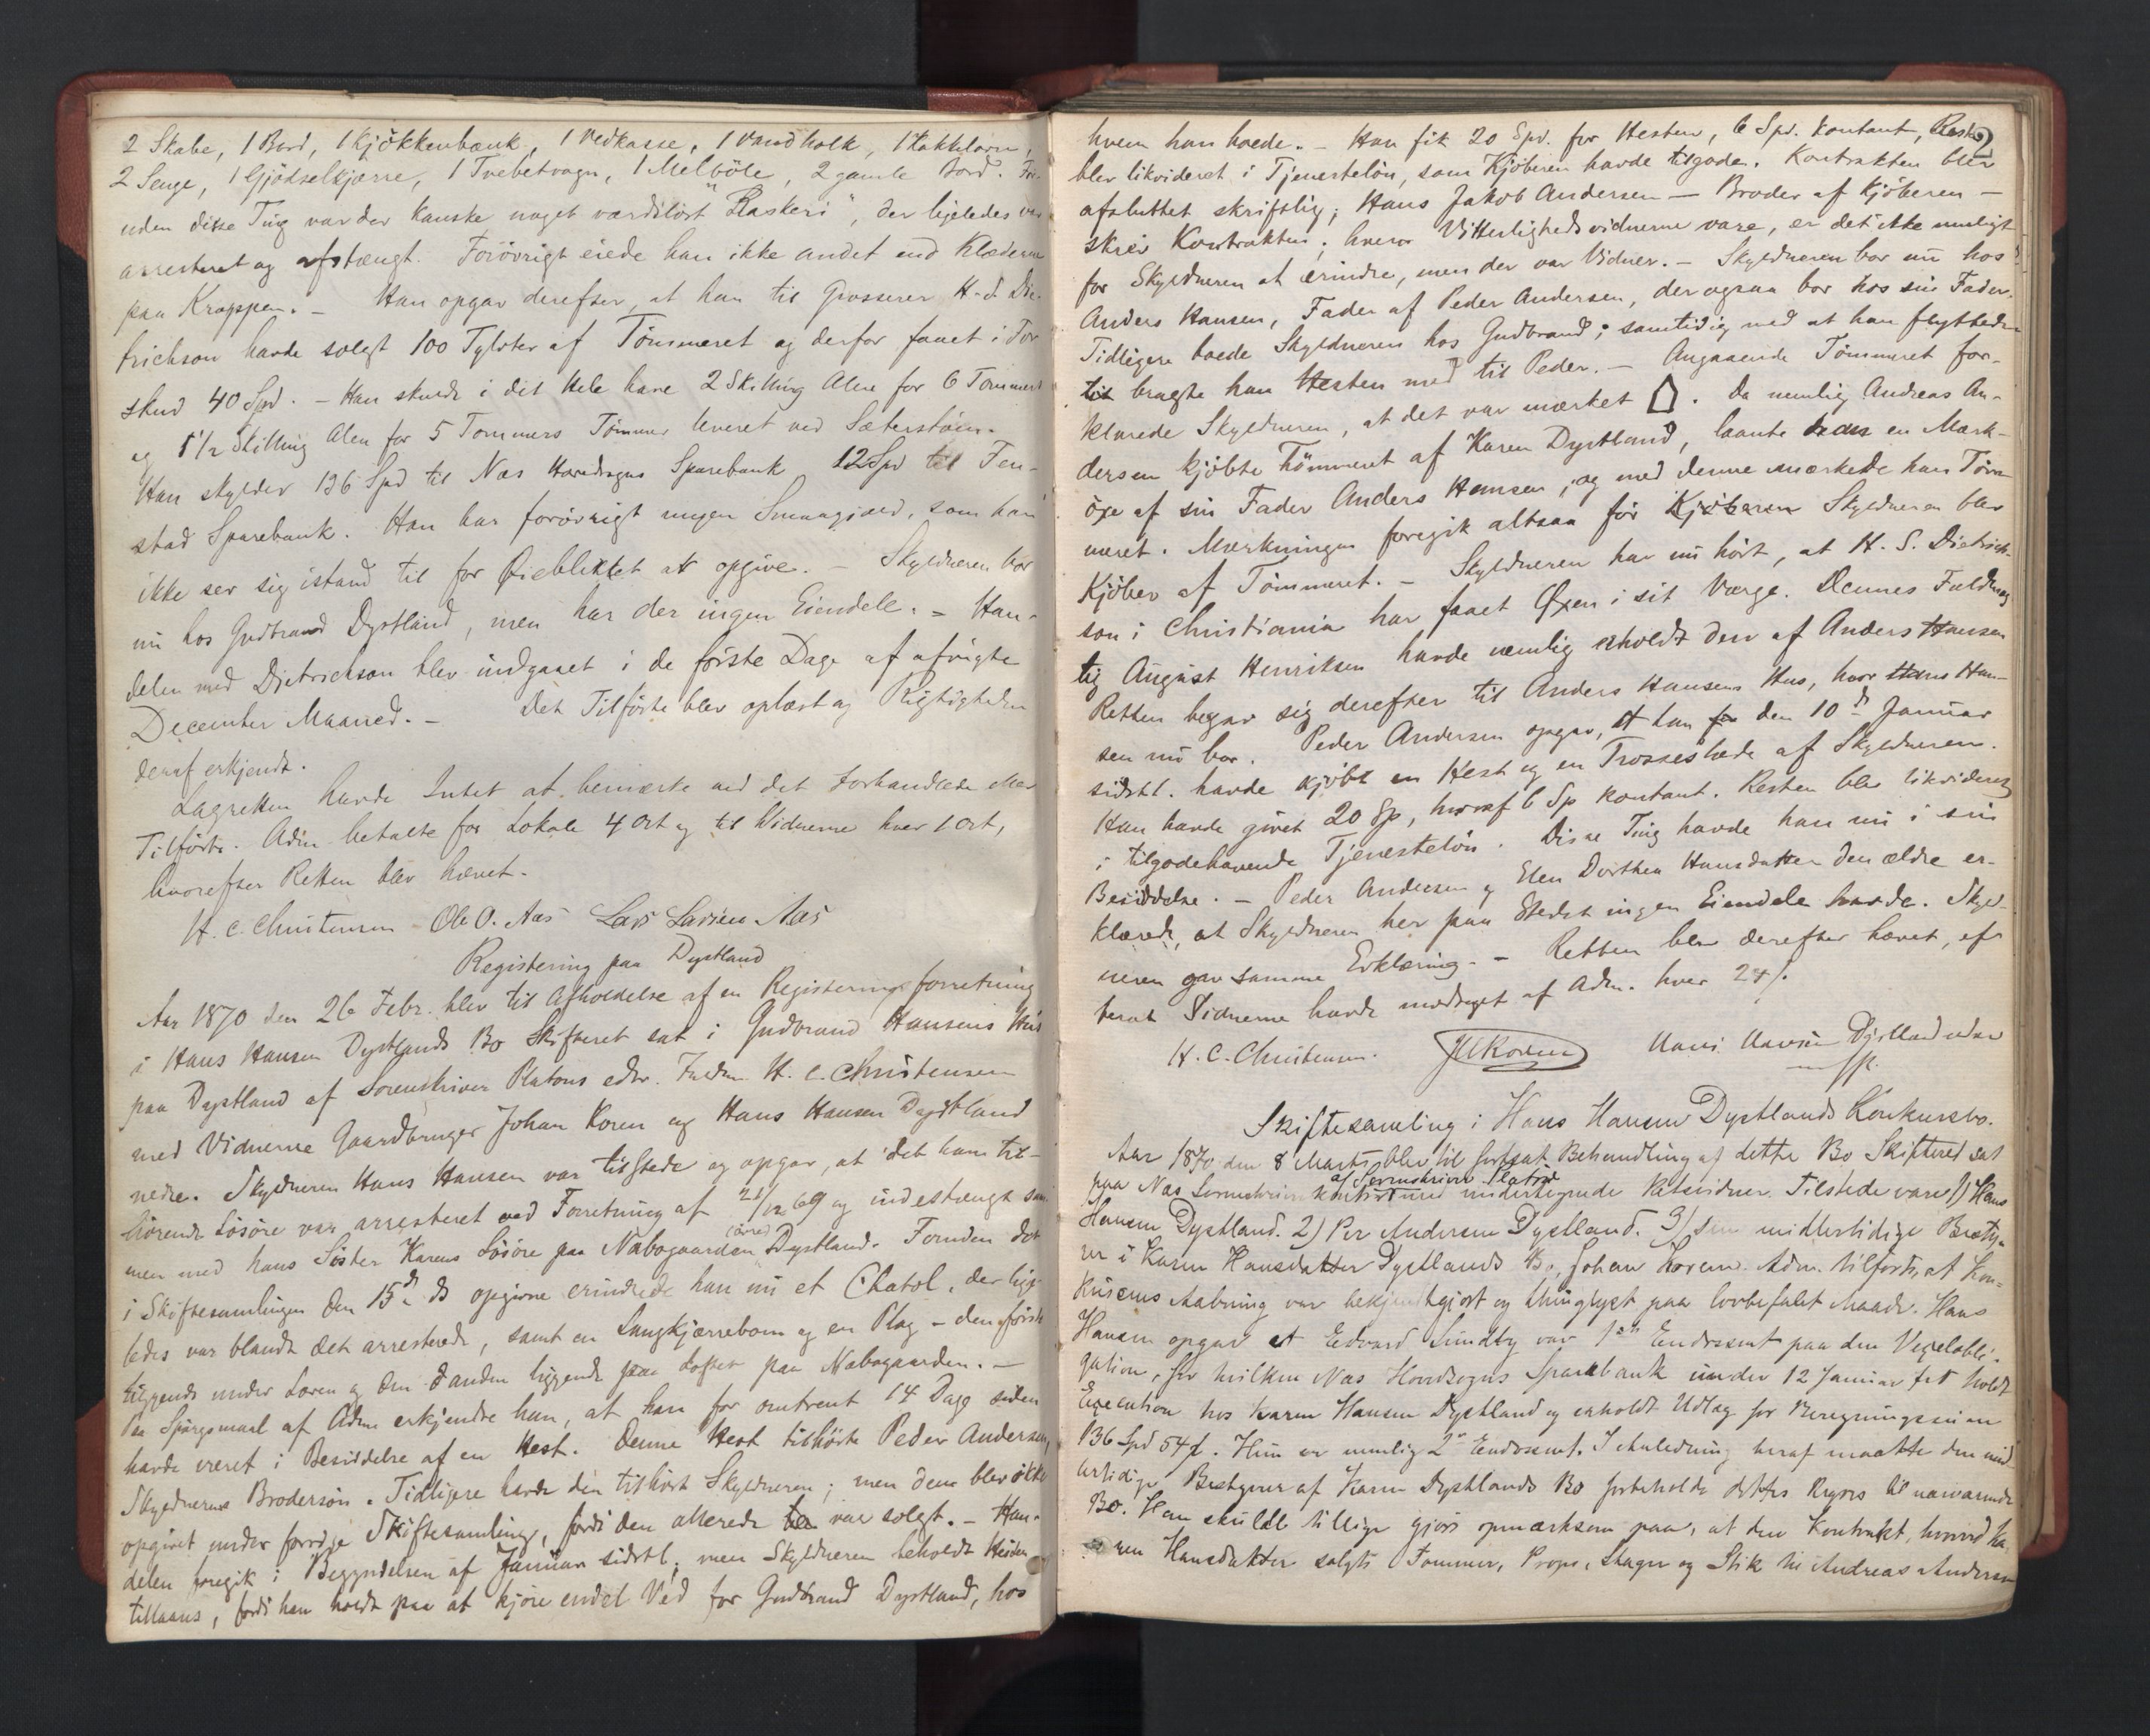 2 Skabe, 1 Bord, 1 Kjökkenbænk, 1 Vedkasse, 1 Vandholk, 1 Kakkelovn,
2 Senge, 1 Gjödselkjærre, 1 Tvebetvogn, 1 Melböle, 2 gamle Bord. For-
uden disse Ting var der kanske noget værdilöst "Raskeri", der ligeledes var
arresteret og afstængt. Forövrigt eiede han ikke andet end Klæderne
paa Kroppen. - Han opgav derefter, at han til Grosserer H. S. Die-
trichson havde solgt 100 Tylvter af Tömmeret og derfor faaet i For-
skud 40 Spd. - Han skulde i det Hele have 2 Skilling Alen for 6 Tommers
og 1 1/2 Skilling Alen for 5 Tommers Tömmer leveret ved Sæterstöen.
Han skylder 136 Spd til Næs Hovedsogns Sparebank 12 Spd til Fen-
stad Sparebank. Han har forövrigt nogen Smaagjæld, som han
ikke ser sig istand til for Øieblikket at opgive. - Skyldneren bor
nu hos Gudbrand Dystland, men har der ingen Eiendele. - Han-
delen med Dietrichson blev indgaaet i de förste Dage af afvigte
December Maaned. - Det Tilförte blev oplæst og Rigtigheden
deraf erkjendt.
Lagretten havde Intet at bemærke ved det Forhandlede eller
Tilförte. Adm. betalte for Lokale 4 Ort og til Vidnerne hver 1 Ort,
hvorefter Retten blev hævet.
H. C. Christensen Ole O. Aas Lars Larsen Aas
Registering paa Dystland
Aar 1870 den 26 Febr. blev til Afholdelse af en Registeringsforretning
i Hans Hansen Dystlands Bo Skifteret sat i Gudbrand Hansens Hus
paa Dystland af Sorenskriver Platous edsv. Fuldm. H. C. Christensen
med Vidnerne Gaardbruger Johan Koren og Hans Hansen Dystland
nedre. Skyldneren Hans Hansen var tilstede og opgav, at det ham til-
hörende Lösöre var arresteret ved Forretning af 28/12 69 og indestængt sam-
men med hans Söster Karens Lösöre paa Nabogaarden (övre) Dystland. Foruden det
i Skiftesamlingen den 15de ds opgivne erindrede han nu et Chatol, der lige-
ledes var blandt det arresterede, samt en Langkjærrebom og en Plog - den förste
liggende under Laven og den anden liggende paa Loftet paa Nabogaarden. -
Paa Spörgsmaal af Adm. erkjendte han, at han for omtrent 14 Dage siden
havde været i Besiddelse af en Hest. Denne Hest tilhörte Peder Andersen,
Skyldnerens Brodersön. Tidligere havde den tilhört Skyldneren; men den blev ikke
opgivet under forrige Skiftesamling, fordi den allerede var solgt. - Han-
delen foregik i Begyndelsen af Januar sidstl.; men Skyldneren beholdt Hesten
tillaans, fordi han holdt paa at kjöre endel Ved for Gudbrand Dystland, hos
2
hvem han boede. - Han fik 20 Spd. for Hesten, 6 Spd. kontant, Resten
blev likvideret i Tjenestelön, som Kjöberen havde tilgode. Kontrakten blev
afsluttet skriftlig; Hans Jakob Andersen - Broder af Kjöberen -
skrev Kontrakten; hvem Vitterlighedsvidnerne vare, er det ikke muligt
for Skyldneren at erindre, men der var Vidner. - Skyldneren bor nu hos
Anders Hansen, Fader af Peder Andersen, der ogsaa bor hos sin Fader.
Tidligere boede Skyldneren hos Gudbrand; samtidig med at han flyttede
til bragte han Hesten med til Peder. - Angaaende Tömmeret for-
klarede Skyldneren, at det var mærket . Da nemlig Andreas An-
dersen kjöbte Tömmeret af Karen Dystland, laante han en Mærk-
öxe af sin Fader Anders Hansen, og med denne mærkede han Töm-
meret. Mærkningen foregik altsaa för Kjöberen Skyldneren blev
Kjöber af Tömmeret. - Skyldneren har nu hört, at H. S. Dietrich-
son i Christiania har faaet Øxen i sit Værge. Dennes Fuldmæg-
tig August Henriksen havde nemlig erholdt den af Anders Hansen
Retten begav sig derefter til Anders Hansens Hus, hvor Hans Han-
sen nu bor. Peder Andersen opgav, at han den 10de Januar
sidstl. havde kjöbt en Hest og en Trosseslæde af Skyldneren.
Han havde givet 20 Sp, hvoraf 6 Sp kontant. Resten blev likvideret
i tilgodehavende Tjenestelön. Disse Ting havde han nu i sin
Besiddelse. - Peder Andersen og Elen Dorthea Hansdatter den ældre er-
klærede, at Skyldneren her paa Stedet ingen Eiendele havde. Skyld-
neren gav samme Erklæring. - Retten blev derefter hævet, ef-
terat Vidnerne havde modtaget af Adm. hver 24 s.
H. C. Christensen. J Koren Hans Hansen Dystland nedre
Skiftesamling i Hans Hansen Dystlands Konkursbo.
Aar 1870 den 8 Marts blev til fortsat Behandling af dette Bo Skifteret sat
paa Næs Sorenskriverkontor af Sorenskriver Platou med undertegnede Retsvidner. Tilstede vare 1) Hans
Hansen Dystland. 2) Per Andersen Dystland. 3) den midlertidige Besty-
rer i Karen Hansdatter Dystlands Bo, Johan Koren. Adm. tilförte, at Kon-
kursens Aabning var bekjendtgjort og thinglyst paa lovbefalet Maade. Hans
Hansen opgav at Edvard Sundby var 1ste Endossent paa den Vexelobli-
gation, for hvilken Næs Hovedsogns Sparebank under 12 Januar holdt
Execution hos Karen Hansen Dystland og erholdt Udlæg for Beregningssum
136 Spd 54 s. Hun er nemlig 2den Endossent. I Anledning heraf maatte den mid-
lertidige Bestyrer af Karen Dystlands Bo forbeholde dettes Regres til nærværende
Bo. Han skulde tillige gjöre opmærksom paa, at den Kontrakt, hvorved Ka-
ren Hansdatter solgte Tömmer, Props, Stager og Stik til Andreas Andersen